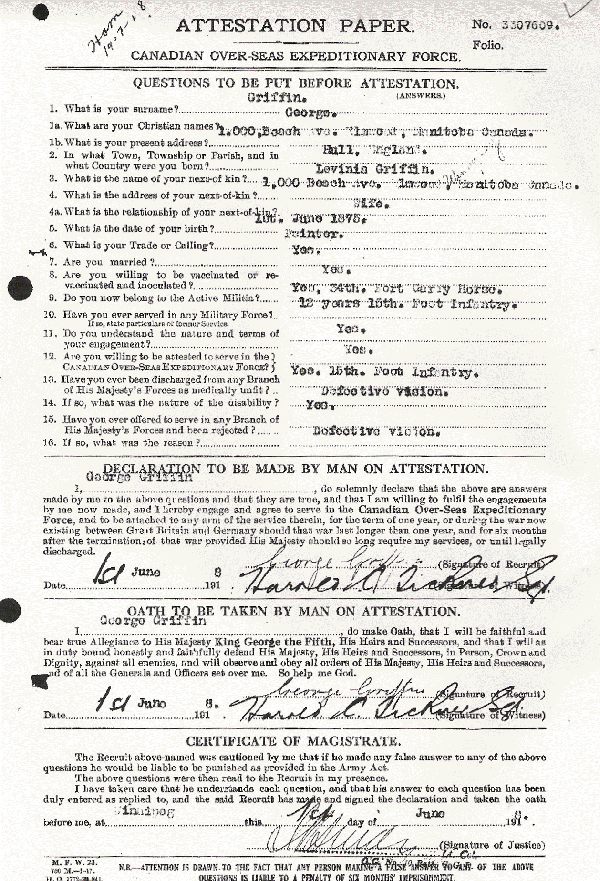 ATTESTATION PAPER.
No. 3307609.
Folio.
CANADIAN OVER-SEAS EXPEDITIONARY FORCE.
QUESTIONS TO BE PUT BEFORE ATTESTATION.
(ANSWERS.)
Griffin.
1. What is your surname?
George.
1a. What are your Christian names?
1,000, Beach Ave. Elmwood, Manitoba Canada.
1b. What is your present address?
Hull, England.
2. In what Town, Township or Parish, and in
what Country were you born?
Levinia Griffin.
3. What is the name of your next-of-kin?
1,000 Beach Ave. Elmwood, Manitoba Canada.
4. What is the address of your next-of-kin?
Wife.
4a. What is the relationship of your next-of-kin?
1st. June 1875.
5. What is the date of your birth?
Painter.
6. What is your Trade or Calling?
Yes.
7. Are you married?
Yes.
8. Are you willing to be vaccinated or re-
vaccinated and inoculated?
Yes, 34th. Fort Garry Horse.
9. Do you now belong to the Active Militia?
12 years 15th. Foot Infantry.
10. Have you ever served in any Military Force?
If so, state particulars of former Service
Yes.
11. Do you understand the nature and terms of
your engagement?
Yes.
12. Are you willing to be attested to serve in the
CANADIAN OVER-SEAS EXPEDITIONARY FORCE?
Yes. 15th. Foot Infantry.
13. Have you ever been discharged from any Branch
of His Majesty's Forces as medically unfit?
Defective vision.
14. If so, what was the nature of the disability?
Yes.
15. Have you ever offered to serve in any Branch of
His Majesty's Forces and been rejected?
Defective vision.
16. If so, what was the reason?
DECLARATION TO BE MADE BY MAN ON ATTESTATION.
George Griffin
I, , do solemnly declare that the above are answers
made by me to the above questions and that they are true, and that I am willing to fulfil the engagements
by me now made, and I hereby engage and agree to serve in the Canadian Over-Seas Expeditionary
Force, and to be attached to any arm of the service therein, for the term of one year, or during the war now
existing between Great Britain and Germany should that war last longer than one year, and for six months
after the termination of that war provided His Majesty should so long require my services, or until legally
discharged.
George Griffin (Signature of Recruit)
Date 1st June 1918 Harold C. (Signature of Witness)
OATH TO BE TAKEN BY MAN ON ATTESTATION.
George Griffin
I, , do make Oath, that I will be faithful and
bear true Allegiance to His Majesty King George the Fifth, His Heirs and Successors, and that I will as
in duty bound honestly and faithfully defend His Majesty, His Heirs and Successors, in Person, Crown and
Dignity, against all enemies, and will observe and obey all orders of His Majesty, His Heirs and Successors,
and of all the Generals and Officers set over me. So help me God.
George Griffin (Signature of Recruit)
Date 1st June 1918. Harold C. (Signature of Witness)
CERTIFICATE OF MAGISTRATE.
The Recruit above-named was cautioned by me that if he made any false answer to any of the above
questions he would be liable to be punished as provided in the Army Act.
The above questions were then read to the Recruit in my presence.
I have taken care that he understands each question, and that his answer to each question has been
duly entered as replied to, and the said Recruit has made and signed the declaration and taken the oath
before me, at Winnipeg this 1st day of June 1918.
(Signature of Justice)
M. F. W. 23.
N.B.—ATTENTION IS DRAWN TO THE FACT THAT ANY PERSON MAKING A FALSE ANSWER TO ANY OF THE ABOVE
QUESTIONS IS LIABLE TO A PENALTY OF SIX MONTHS' IMPRISONMENT.